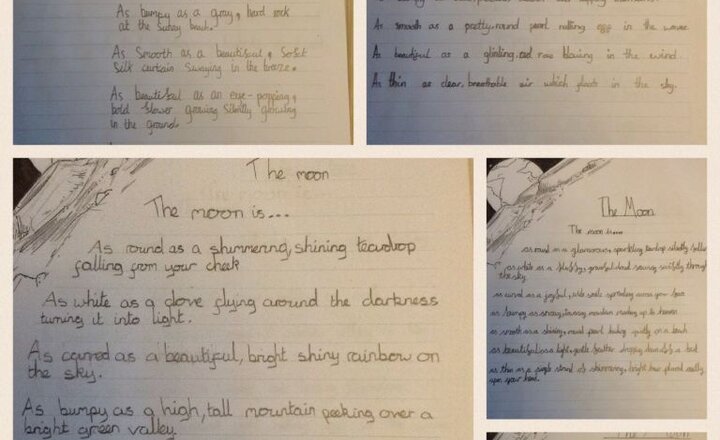 As bumpy as a gray, hard rock
at the sunny beach.
As Smooth as a beautiful, Sofet
Silk curtain Swaying in the breeze.
As beautiful as an eye-popping,
bold flower growing Silently glowing
in the ground.
As smooth as a pretty, round pearl rolling egg in the waves.
As beautiful as a glinting, red rose blowing in the wind.
As thin as clear, breathable air which floats in the sky.
The moon
The moon is...
As round as a shimmering, shining teardrop
falling from your cheek
As white as a dove flying around the darkness
turning it into light.
As curved as a beautiful, bright shiny rainbow on
the sky.
As bumpy as a high, tall mountain peeking over a
bright green valley.
The Moon
The moon is....
as round as a glamorous, sparkling teardrop silently
as white as a fluffy, graceful cloud swiftly through
the sky.
as curved as a joyful, wide smile spreading across your face
as bumpy as mountain up to heaven
as smooth as a shining, round pearl quietly on a beach
as beautiful as a light, gentle feather
as thin as a single strand of shimmering, bright hair placed
upon your head.
The Moon